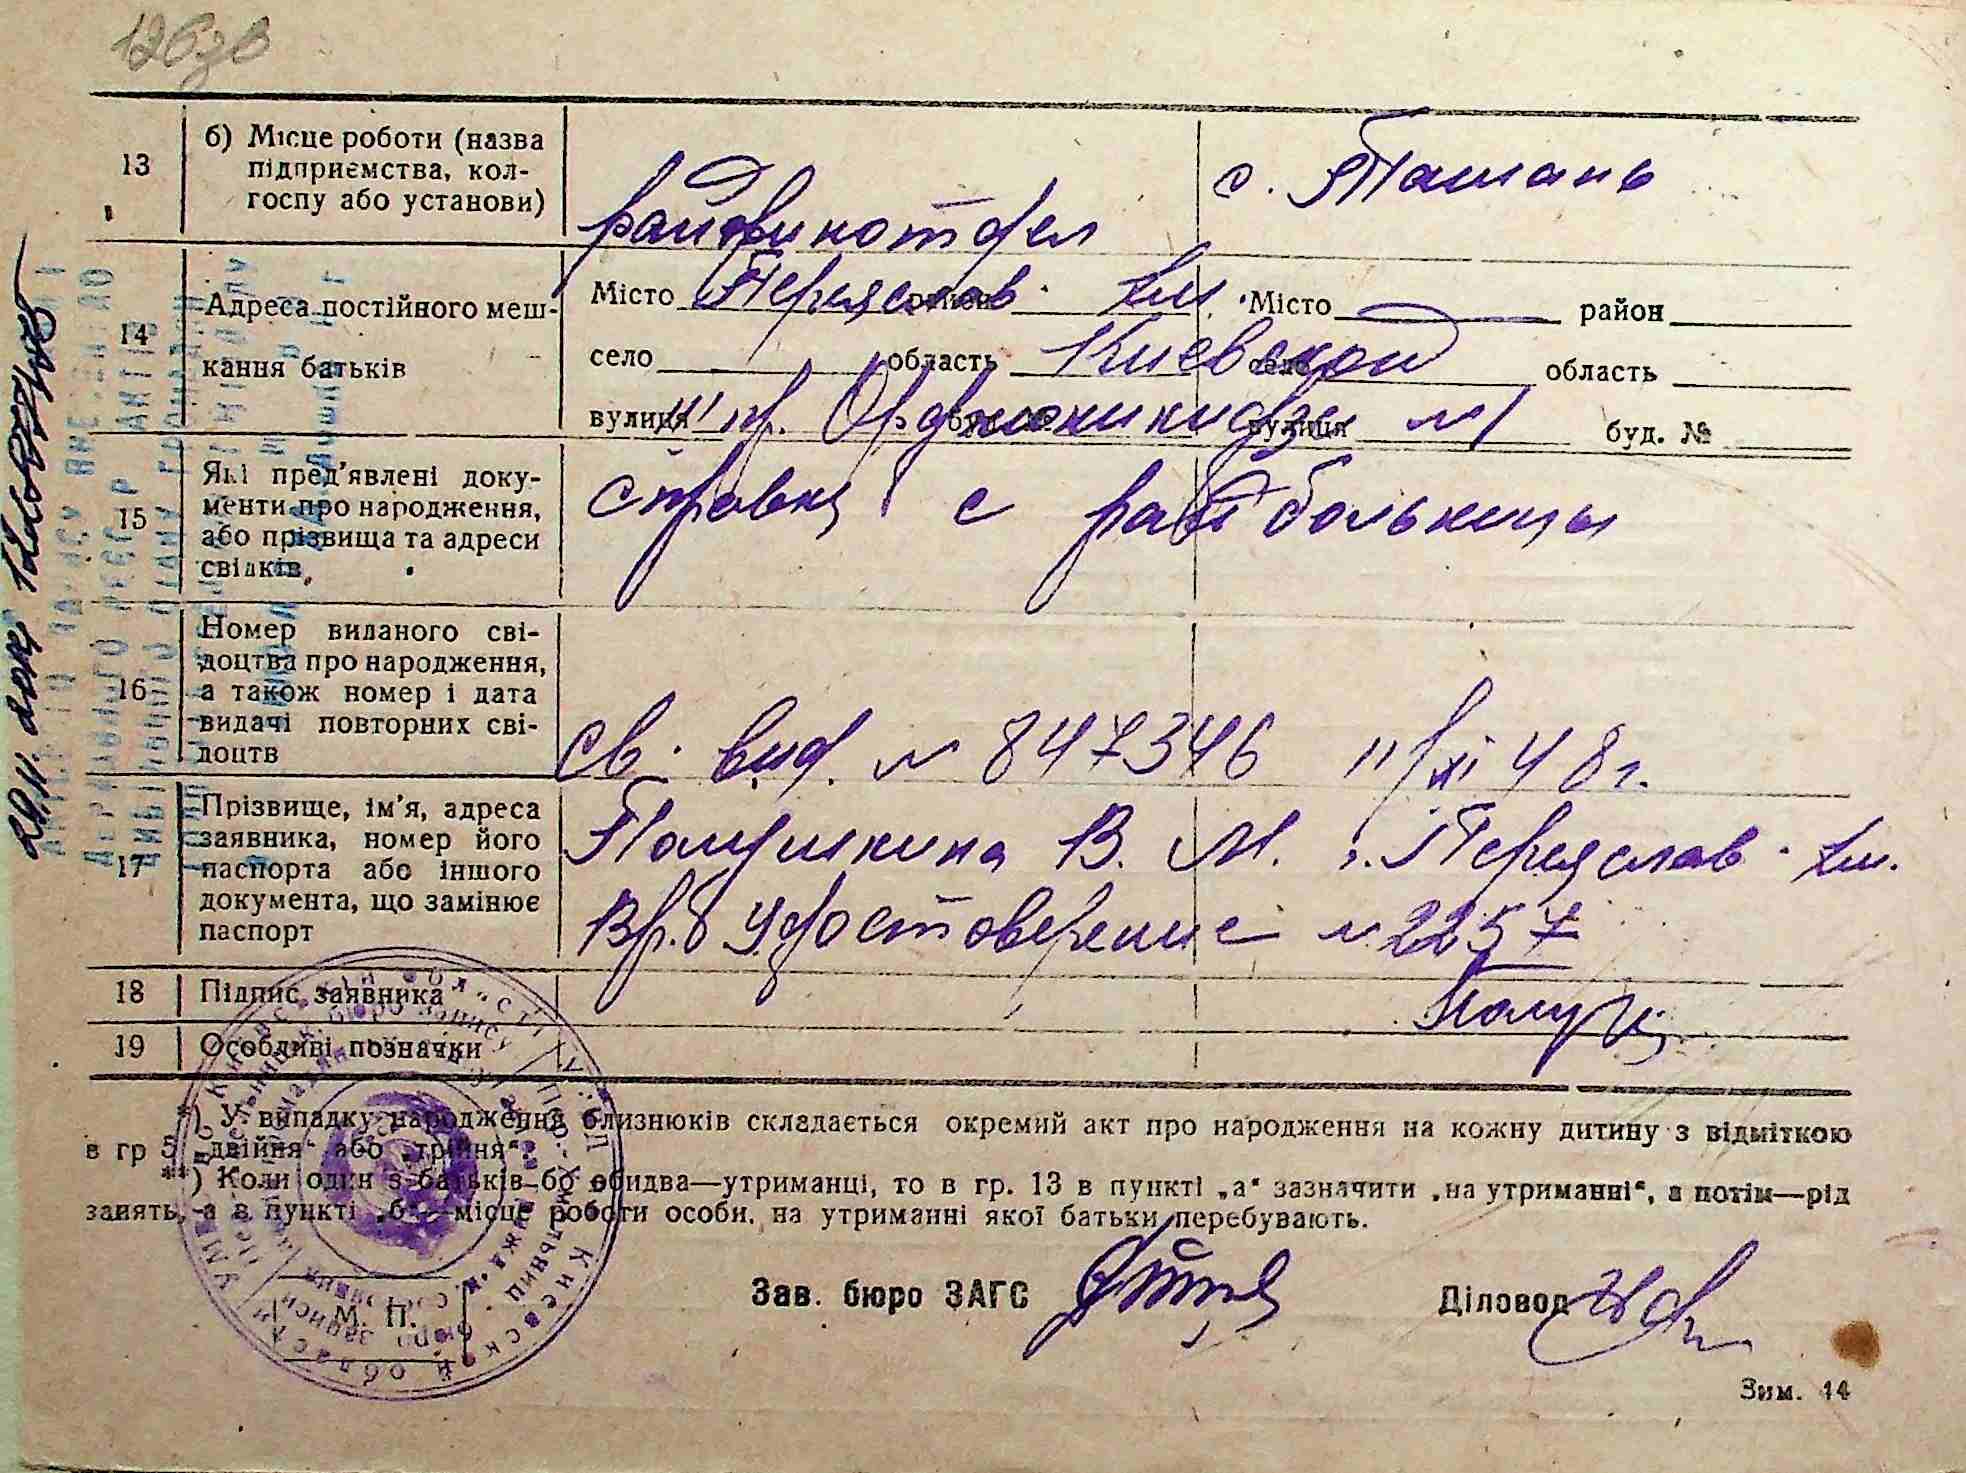 126зв
13
б) Місце роботи (назва
підприємства, кол-
госпу або установи)
райфинотдел
с. Ташань
14
Адреса постійного меш-
кання батьків
Місто Переяслав - Хм. Місто район
село область Киевской село область
вулиця пр. Орджоникидзе №1 вулиця буд. №
15
Які пред'явлені доку-
менти про народження,
або прізвища та адреси
свідків.
справка с райбольницы
16
Номер виданого сві-
доцтва про народження,
а також номер і дата
видачі повторних сві-
доцтв
св. выд. № 847346 11/XI 48 г.
17
Прізвище, ім'я, адреса
заявника, номер його
паспорта або іншого
документа, що замінює
паспорт
В. М. г. Переяслав - Хм.
Вр. удостоверение № 2257
18
Підпис заявника
19
Особливі позначки
*) У випадку народження близнюків складається окремий акт про народження на кожну дитину з відміткою
в гр 5 „двійня“ або „трійня“.
**) Коли один з батьків бо обидва—утриманці, то в гр. 13 в пункті „а“ зазначити „на утриманні“, а потім—рід
занять, а в пункті „б“—місце роботи особи, на утриманні якої батьки перебувають.
М. П.
Зав. бюро ЗАГС
Діловод
Зим. 14